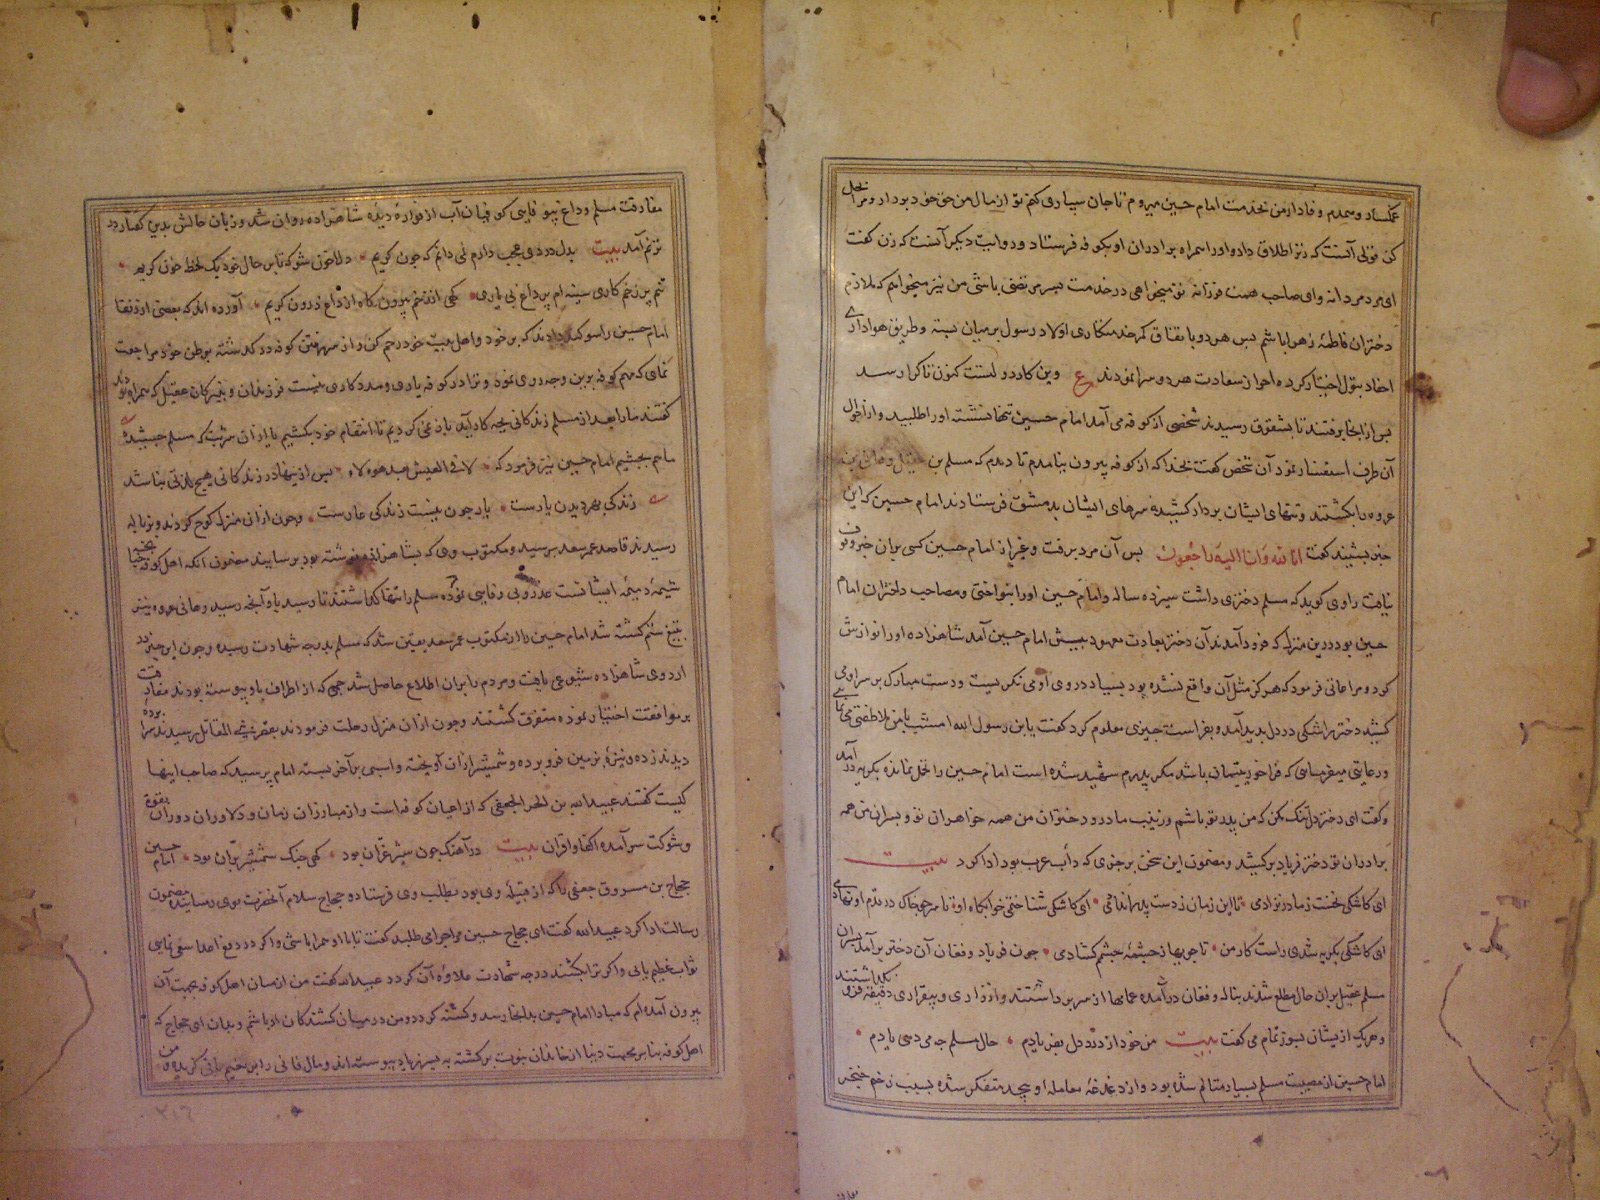 غمگسار و همدم و فادار من بخدمت امام حسین میروم تا جان سپاری کنم تو از مال من حق خود بردار و مرا بحل
کن قولی آنست که زنرا طلاق داد و او را همراه برادران او بکوفه فرستاد و روایت دیگر آنست که زن گفت
ای مرد مردانه و ای صاحب همت فرزانه تو میخواهی در خدمت پسر مرتضی باشی من نیز میخواهم که ملازم
دختران فاطمه زهرا باشم پس هر دو باتفاق کمر خدمتکاری اولاد رسول بر میان بسته و طریق هواداری
احفاد بتول اختیار کرده احراز سعادت هر دو سرا نمودند ع وین کار دولتست کنون تا کرا رسد
پس از انجا برفتند تا بشقوق رسیدند شخصی از کوفه می آمد امام حسین تنها نشسته او را طلبید و از احوال
آن طرف استفسار نمود آن شخص گفت بخدا که از کوفه بیرون نیامدم تا دیدم که مسلم بن عقیل و هانی بن
عروه را بکشتند و تنهای ایشان بردار کشیده سرهای ایشان بدمشق فرستادند امام حسین که این
خبر بشنید گفت انا لله وانا الیه راجعون پس آن مرد برفت و غیر از امام حسین کسی بران خبر وقوف
نیافت راوی گوید که مسلم دختری داشت سیزده ساله و امام حسین او را بنواختی و مصاحب دختران امام
حسین بود درین منزل که فرود آمدند آن دختر بعادت معهود پیش امام حسین آمد شاهزاده او را نوازش
کرد و مراعاتی فرمود که هرگز مثل آن واقع نشده بود بسیار در روی او می نگریست و دست مبارک بر سر او می
کشید دختر را شکی در دل پدید آمد و بفراست چیزی معلوم کرد گفت یا بن رسول الله امشب با من ملاطفتی می نمایی
و رعایتی میفرمایی که فراخور یتیمان باشد مگر پدرم شهید شده است امام حسین را تحمل نمانده بگریه در آمد
و گفت ای دختر دل تنگ مکن که من پدر تو باشم و زینب مادر و دختران من همه خواهران تو و پسران من همه
برادران تو دختر فریاد برکشید و مضمون این سخن بر چیزی که دأب عرب بود ادا کرد بیت
ای کاشکی نخست ز مادر نزادمی تا این زمان ز دست پدر
ای کاشکی شدی راست کار من تا جویها ز چشمه چشم گشادمی چون فریاد و فغان آن دختر برآمد پسران
مسلم عقیل بران حال مطلع شدند بناله و فغان درآمده عمامها از سر برداشتند و از زاری و بیقراری دقیقه فرو نگذاشتند
و هر یک از یشان بسوز تمام می گفت بیت من خود از درد دل بفریادم حال مسلم چه می دهی یادم
امام حسین از مصیبت مسلم بسیار متالم شده بود و از دغدغه معامله او بیحد متفکر شده بسبب زخم خنجر
مفارقت مسلم وداع دیده شاهزاده روان شد و زبان حالش بدین گفتار در
ترنم آمد بیت بدل دردی عجب دارم نمی دانم که چون گریم دلا خون شو که تا بر حال خود یک لحظه خون گریم
ز داغ درون گریم آورده اند که بعضی از رفقا
امام حسین را سوگند دادند که بر خود و اهل بیت خود رحم کن و از سر رفتن کوفه در گذشته بوطن خود مراجعت
نمای که در کوفه یاری و مددکاری نیست فرزندان و نبیرگان عقیل که همراه بودند
گفتند ما را بعد از مسلم زندگانی بچه کار آید باز نمی گردیم تا انتقام خود بکشیم یا ازان شربت که مسلم چشیده
ما هم بچشیم امام حسین نیز فرمود که لا خیر فی العیش بعد هولاء پس از ینها در زندگانی هیچ لذتی نباشد
زندگی بهر دیدن یارست یار چون نیست زندگی عارست و چون ازان منزل کوچ کردند و بزباله
رسیدند قاصد عمر سعد برسید و مکتوب وی که بشاهزاده نوشته بود برسانید مضمون آنکه اهل کوفه
شیمه ذمیمه ایشانست عذر و بی وفایی نموده مسلم را تنها گذاشتند تا رسید باو آنچه رسید و هانی عروه نیز
بتیغ ستم کشته شد امام حسین را از مکتوب عمر سعد یقین شد که مسلم بدرجه شهادت رسیده و چون این خبر در
اردوی شاهزاده شیوعی یافت و مردم را بران اطلاع حاصل شد جمعی که از اطراف باو پیوسته بودند مفارقت
بر موافقت اختیار نموده متفرق گشتند و چون ازان منزل رحلت فرمودند بقصر بنی مقاتل رسیدند سراپرده
دیدند زده و نیزه بزمین فرو برده و شمشیر ازان آویخته و اسپی بر آخر بسته امام پرسید که صاحب اینها
کیست گفتند عبیدالله بن الحر الجعفی که از اعیان کوفه است و از مبارزان زمان و دلاوران دوران بقوت
و شوکت سر آمده اکفا و اقران بیت در آهنگ چون شیر غران بود گهی جنگ شمشیر بران بود امام حسین
حجاج بن مسروق جعفی را که از قبیله وی بود بطلب وی فرستاده حجاج سلام آنحضرت بوی رسانیده مضمون
رسالت ادا کرد عبیدالله گفت ای حجاج حسین مرا چرا می طلبد گفت تا با او همراه باشی و اگر در دفع اعدا سعی نمایی
ثواب عظیم یابی و اگر ترا بکشند درجه شهادت علاوه آن گردد عبیدالله گفت من از میان اهل کوفه بجهت آن
بیرون آمده ام که مبادا امام حسین بدانجا رسد و کشته گردد و من در میان کشندگان او باشم و بدان ای حجاج که
اهل کوفه بنا بر محبت دنیا از خاندان نبوت برگشته به پسر زیاد پیوسته اند و مال فانی را بر نعیم باقی گزیده و من
٣١٦